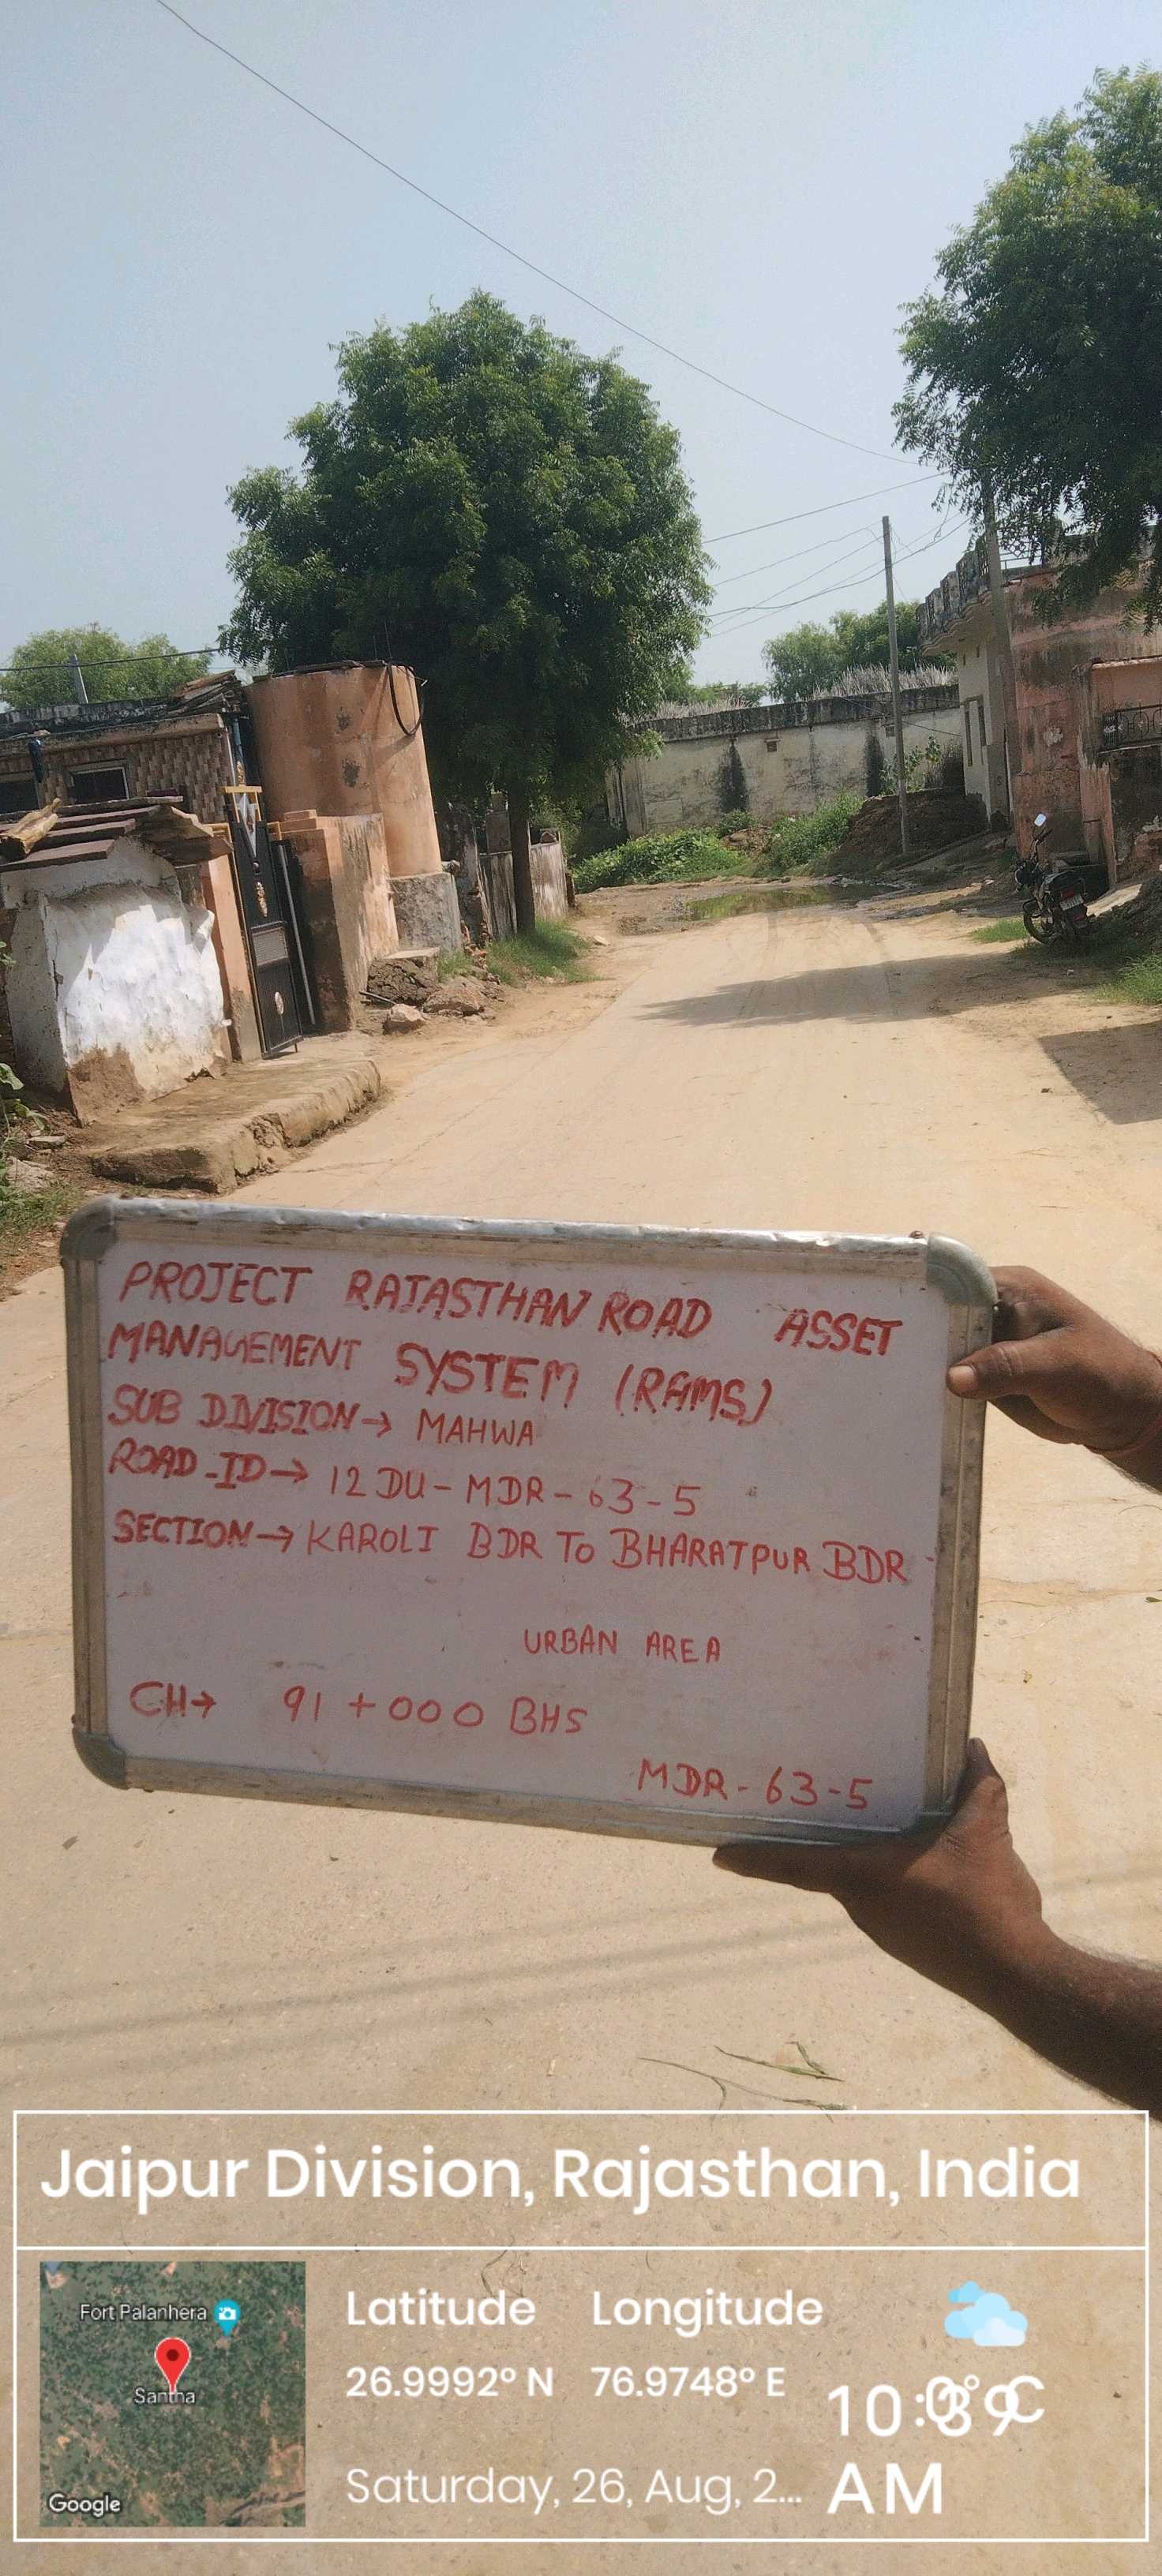 PROJECT RAJASTHAN ROAD ASSET
MANAGEMENT SYSTEM (RAMS)
SUB DIVISION → MAHWA
ROAD-ID → 12DU-MDR-63-5
SECTION → KAROLI BDR TO BHARATPUR BDR
URBAN AREA
CH → 91+000 BHS
MDR-63-5
Jaipur Division, Rajasthan, India
Fort Palanhera
Santha
Google
Latitude Longitude
26.9992° N 76.9748° E
Saturday, 26, Aug, 2...
AM